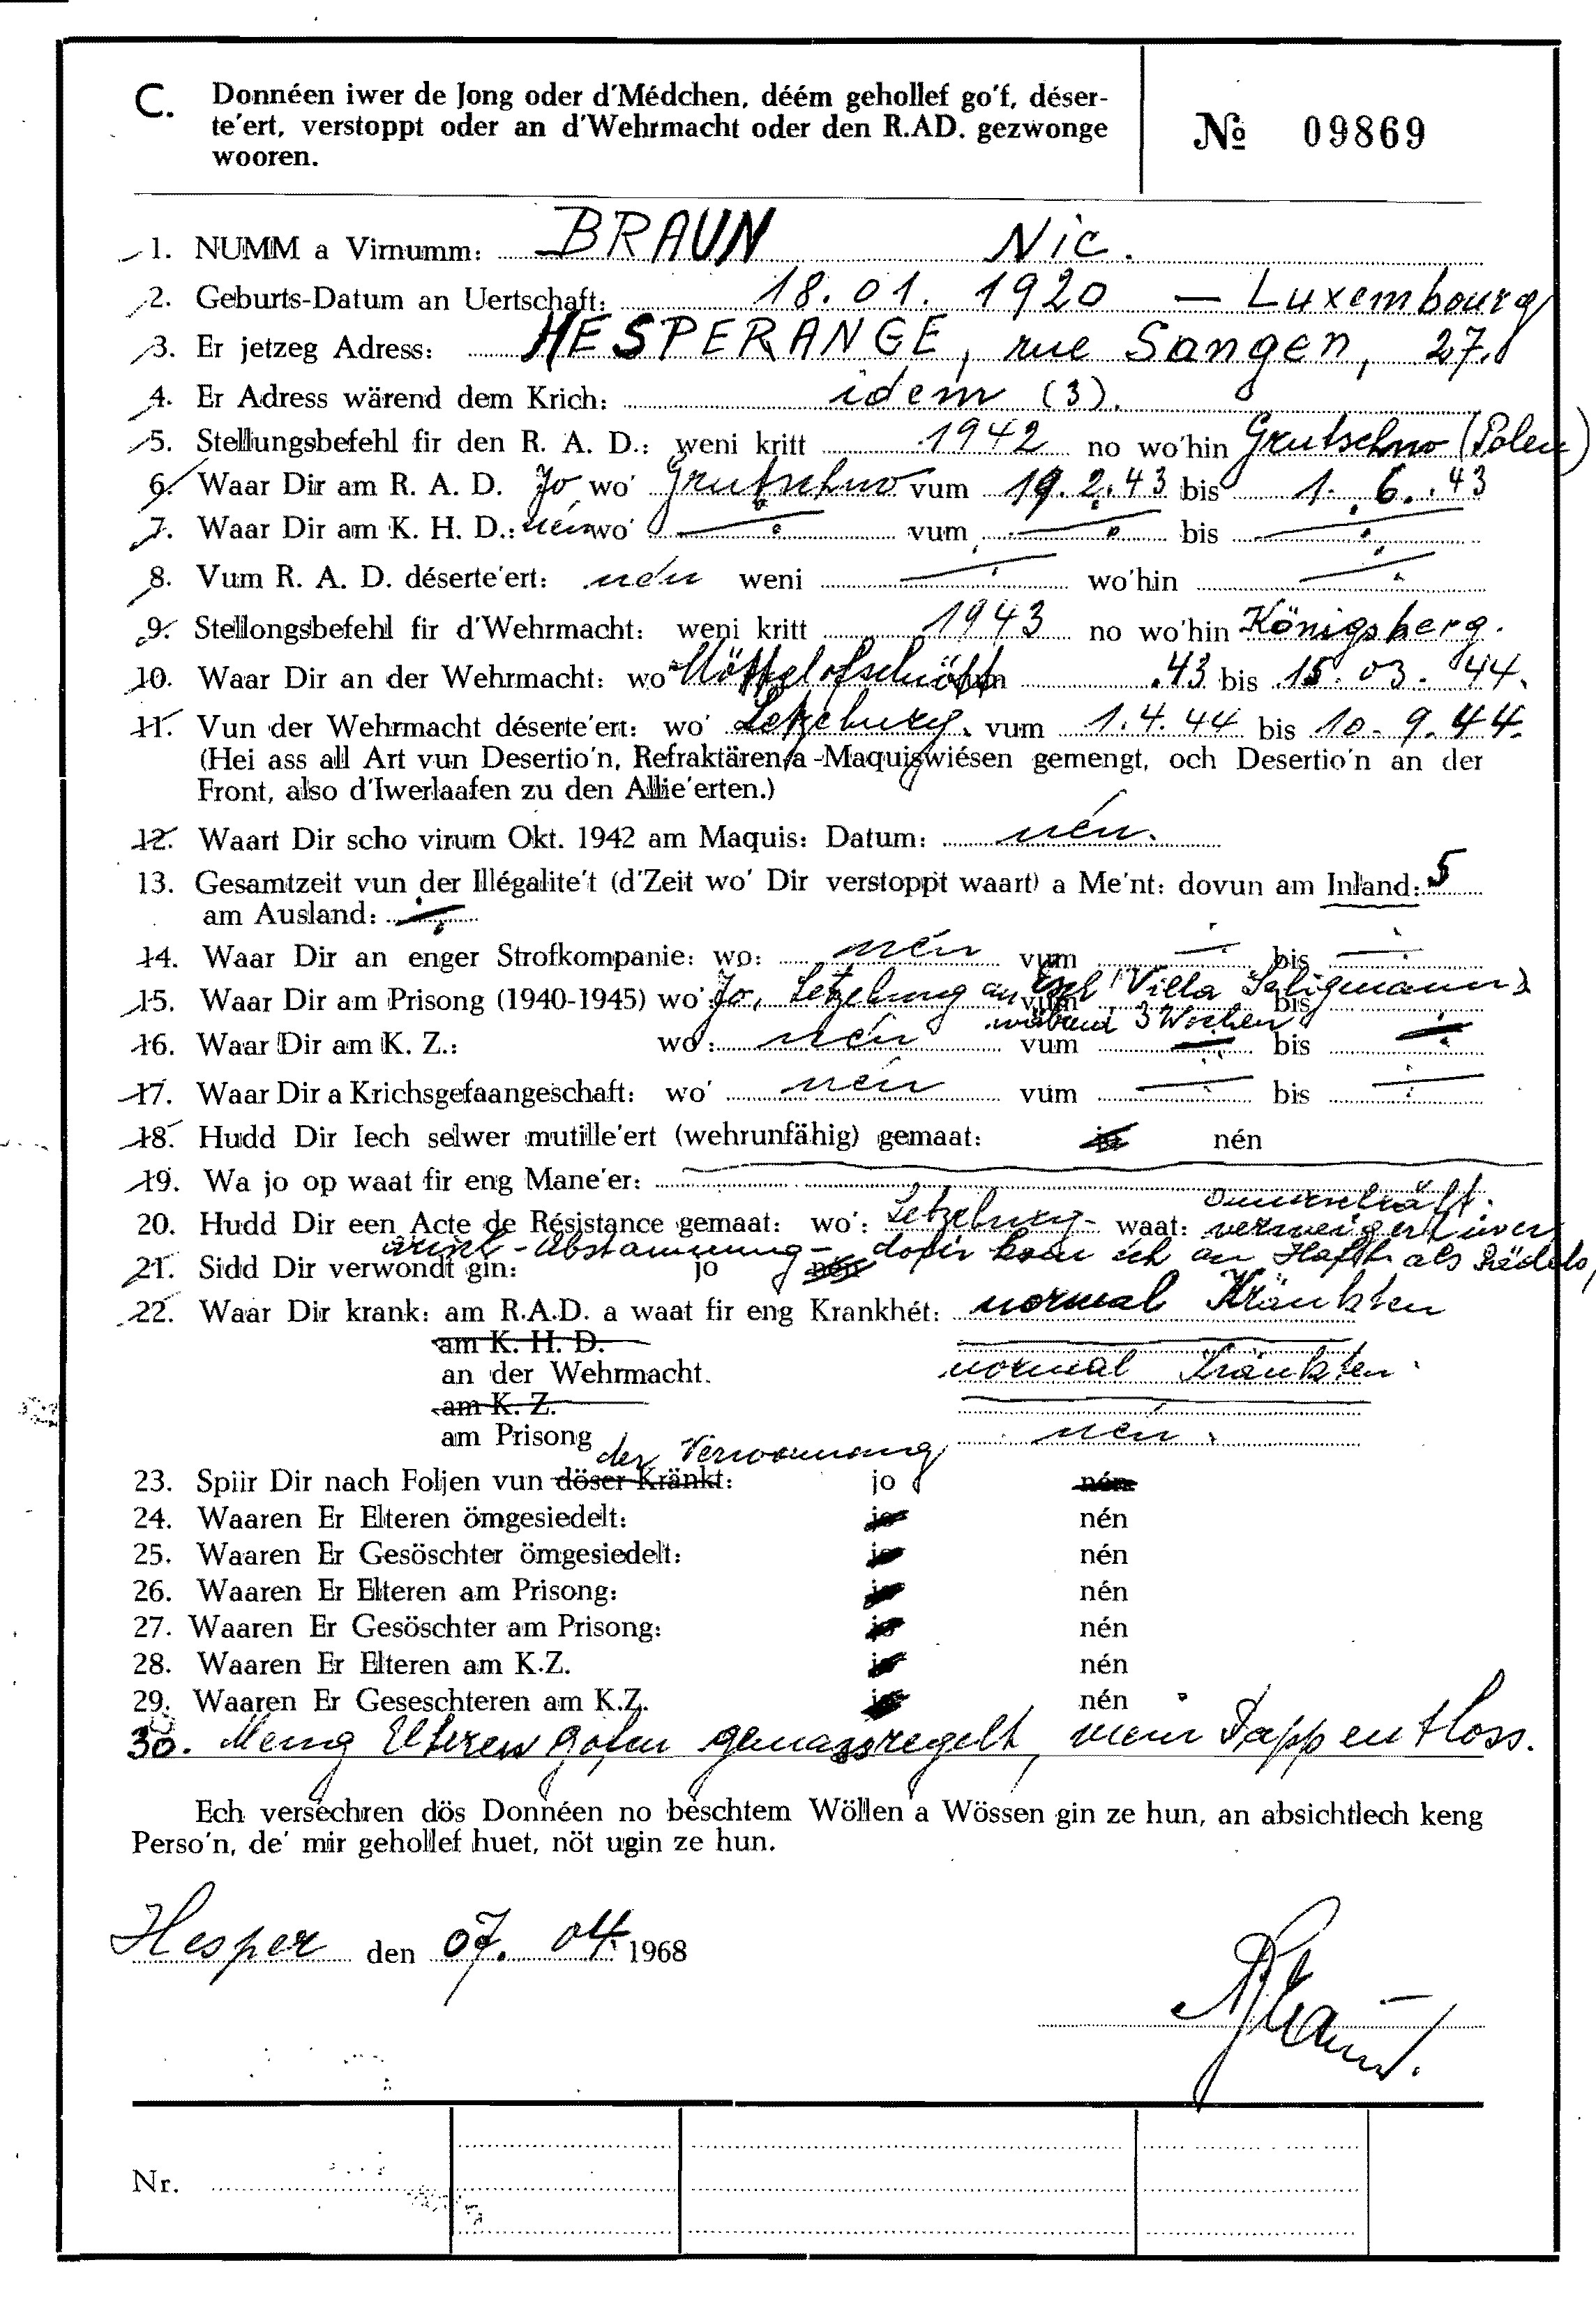 C. Donnéen iwer de Jong oder d'Médchen, déém gehollef go'f, déser-
te'ert, verstoppt oder an d'Wehrmacht oder den R.AD. gezwonge
wooren.
No 09869
1. NUMM a Virnumm: BRAUN Nic.
2. Geburts-Datum an Uertschaft: 18.01.1920 — Luxembourg
3. Er jetzeg Adress: HESPERANGE, rue Sangen, 27.
4. Er Adress wärend dem Krich: idem (3).
5. Stellungsbefehl fir den R. A. D.: weni kritt 1942 no wo'hin Grutschno (Polen)
6. Waar Dir am R. A. D. Jo wo' Grutschno vum 19.2.43 bis 1.6.43
7. Waar Dir am K. H. D.: nein wo' vum bis
8. Vum R. A. D. déserte'ert: nén weni wo'hin
9. Stellongsbefehl fir d'Wehrmacht: weni kritt 1943 no wo'hin Königsberg.
10. Waar Dir an der Wehrmacht: wo' .43 bis 15.03.44.
11. Vun der Wehrmacht déserte'ert: wo' Letzeburg. vum 1.4.44 bis 10.9.44.
(Hei ass all Art vun Desertio'n, Refraktären a -Maquiswiésen gemengt, och Desertio'n an der
Front, also d'Iwerlaafen zu den Allie'erten.)
12. Waart Dir scho virum Okt. 1942 am Maquis: Datum: nén.
13. Gesamtzeit vun der Illégalite't (d'Zeit wo' Dir verstoppt waart) a Me'nt: dovun am Inland: 5
am Ausland:
14. Waar Dir an enger Strofkompanie: wo: nén vum bis
15. Waar Dir am Prisong (1940-1945) wo' Jo, Letzeburg an Esch (Villa Seligmann) vum bis
während 3 Wochen
16. Waar Dir am K. Z.: wo: nén vum bis
17. Waar Dir a Krichsgefaangeschaft: wo' nén vum bis
18. Hudd Dir Iech selwer mutille'ert (wehrunfähig) gemaat: jo nén
19. Wa jo op waat fir eng Mane'er:
20. Hudd Dir een Acte de Résistance gemaat: wo': Letzeburg waat: verweigert iwer
arisch-Abstammung - dofir kom ich an Haft als Rädels
21. Sidd Dir verwondt gin: jo nén
22. Waar Dir krank: am R.A.D. a waat fir eng Krankhét: normal Kränkten
am K. H. D.
an der Wehrmacht. normal Kränkten
am K. Z.
am Prisong nén.
der Verwonnung
23. Spiir Dir nach Foljen vun döser Kränkt: jo nén
24. Waaren Er Elteren ömgesiedelt: jo nén
25. Waaren Er Gesöschter ömgesiedelt: jo nén
26. Waaren Er Elteren am Prisong: jo nén
27. Waaren Er Gesöschter am Prisong: jo nén
28. Waaren Er Elteren am K.Z. jo nén
29. Waaren Er Geseschteren am K.Z. jo nén
30. Meng Elteren gofen gemassregelt, mein Papp entloss.
Ech versechren dös Donnéen no beschtem Wöllen a Wössen gin ze hun, an absichtlech keng
Perso'n, de' mir gehollef huet, nöt ugin ze hun.
Hesper den 07. 04. 1968
Braun.
Nr.